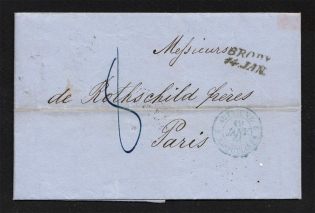 Messieurs
BRODY
14 JAN.
de Rothschild frères
8
Paris